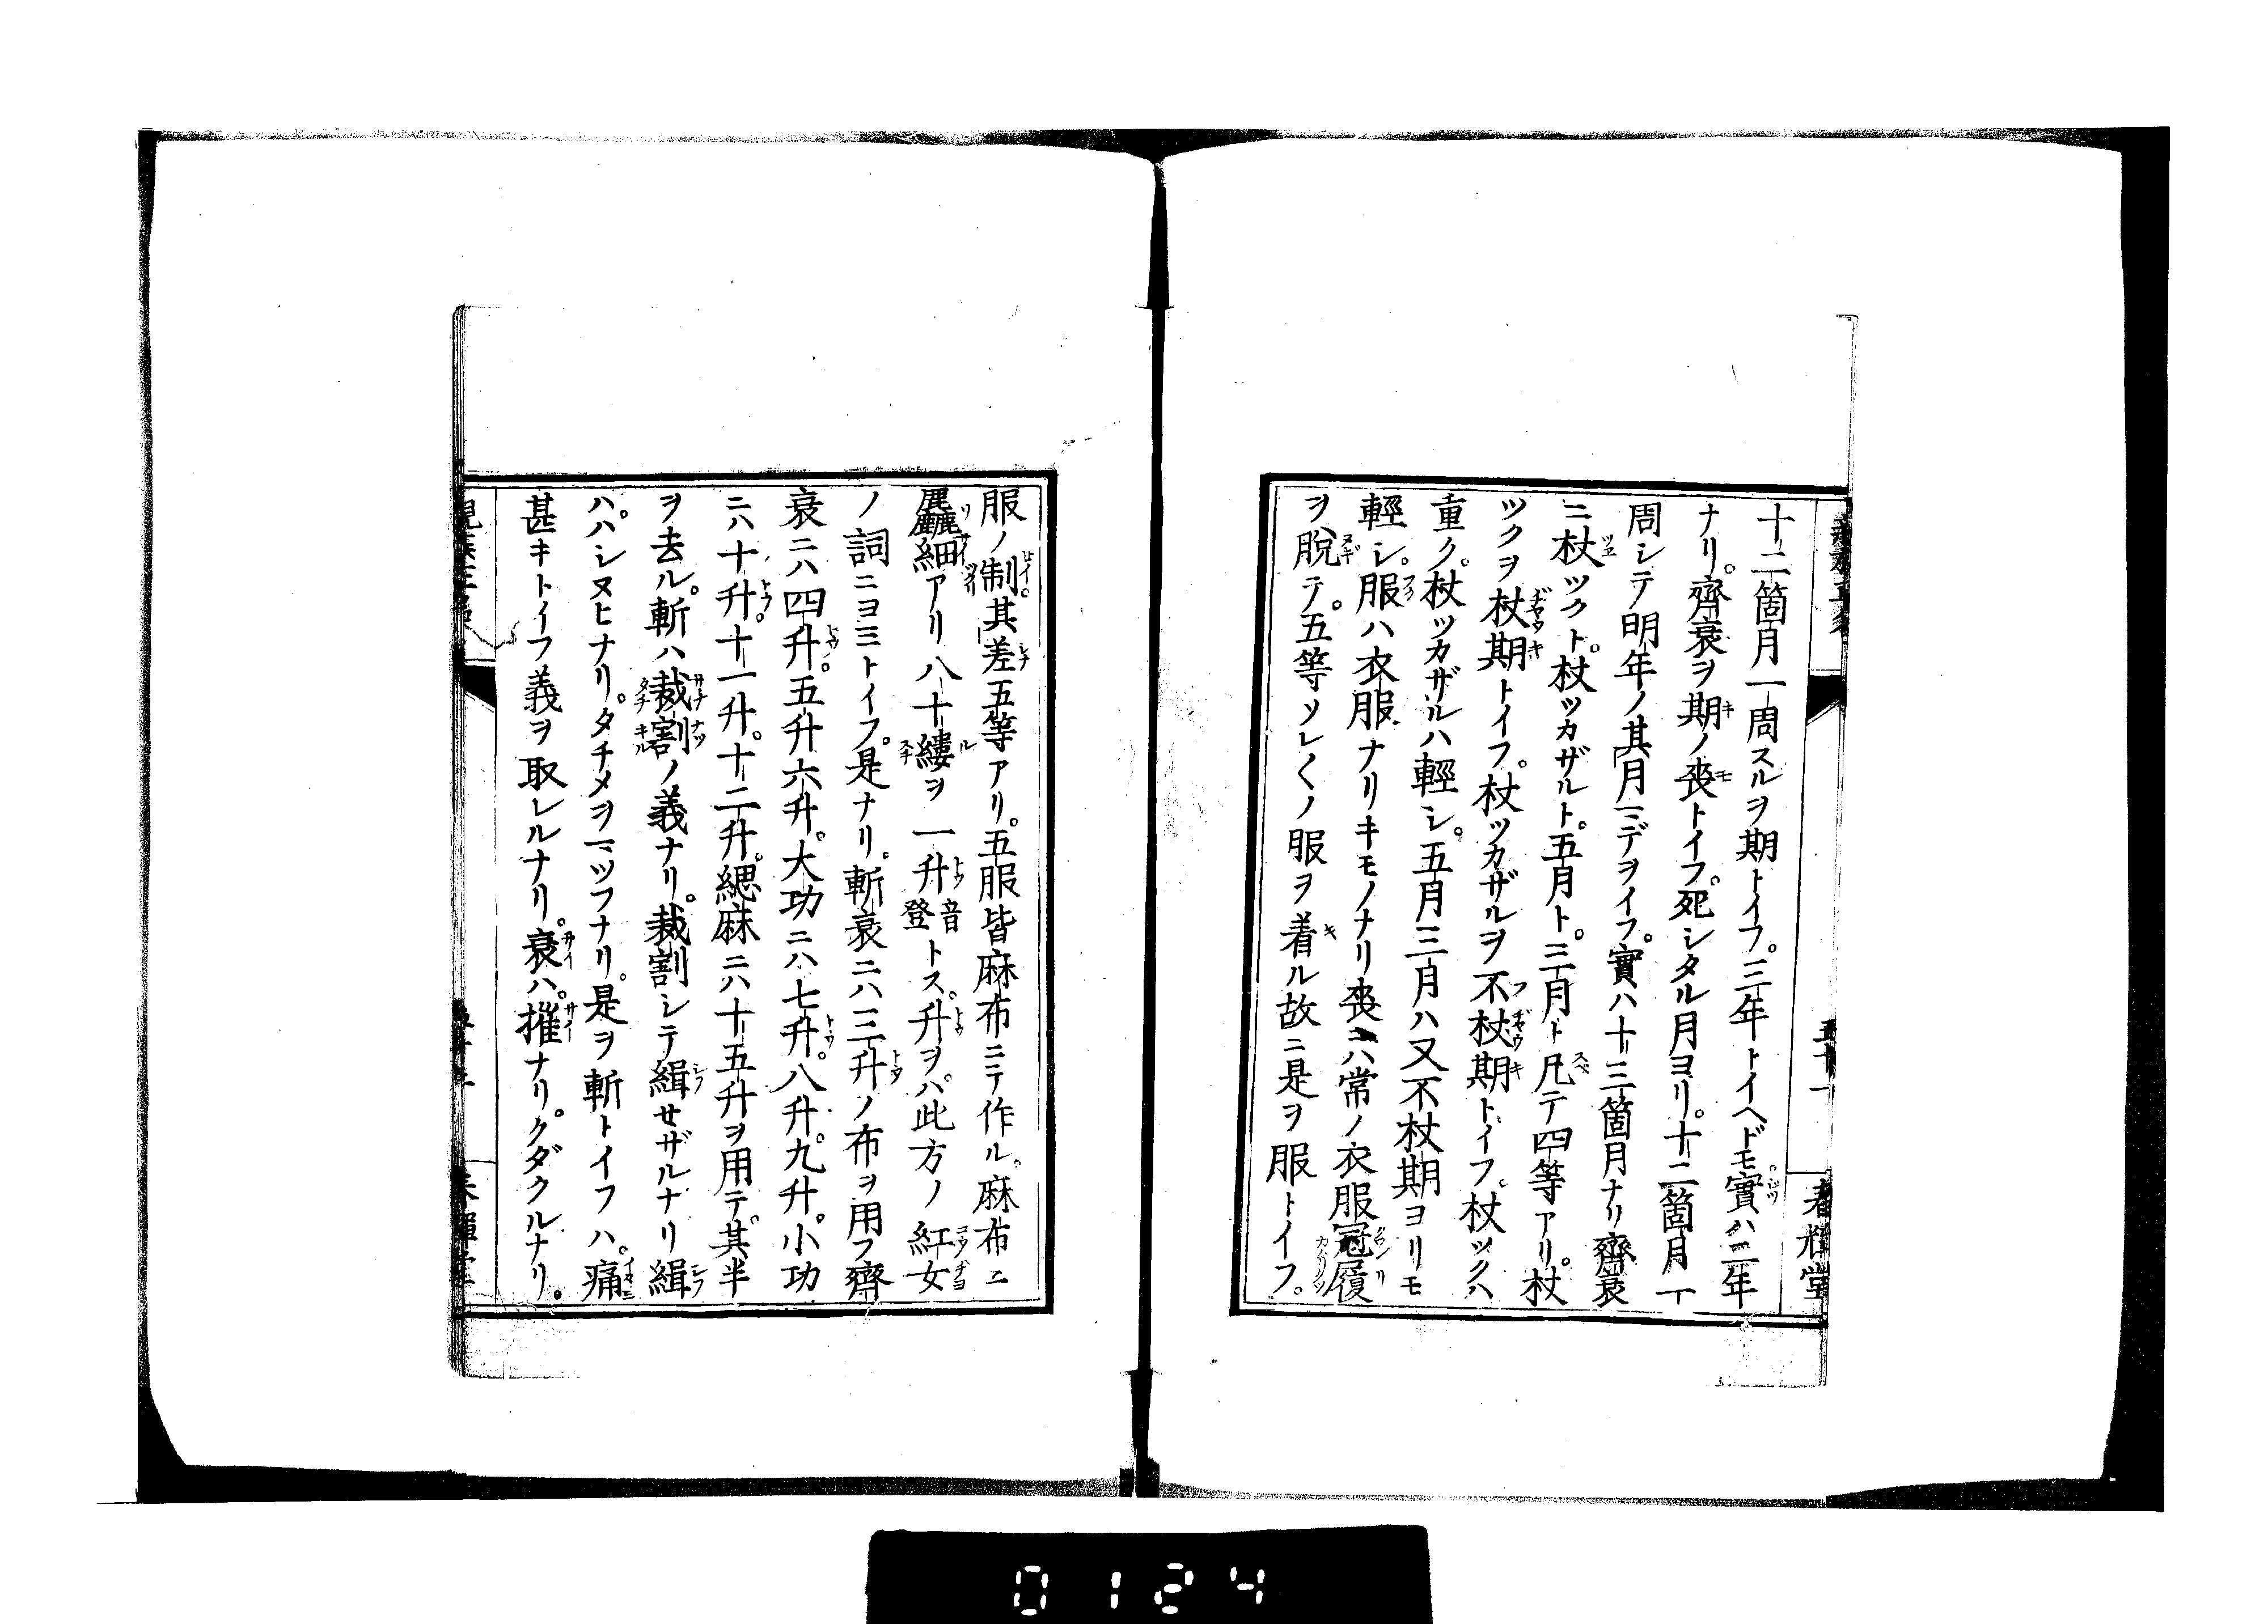 十二箇月一周スルヲ期トイフ。三年トイヘドモ實ハ二年
ナリ。齊衰ヲ期ノ喪トイフ。死シタル月ヨリ。十二箇月一
周シテ明年ノ其月マデヲイフ。實ハ十三箇月ナリ齊衰
ニ杖ツクト。杖ツカザルト。五月ト。三月ト凡テ四等アリ。杖
ツクヲ杖期トイフ。杖ツカザルヲ不杖期トイフ。杖ツクハ
重ク。杖ツカザルハ輕シ。五月三月ハ又不杖期ヨリモ
輕シ。服ハ衣服ナリキモノナリ喪ニハ常ノ衣服冠履
ヲ脫テ。五等ソレ〱ノ服ヲ着ル故ニ是ヲ服トイフ。
五十一
春輝堂
服ノ制。其差五等アリ。五服皆麻布ニテ作ル。麻布ニ
麤細アリ八十縷ヲ一升音登トス。升ヲバ此方ノ紅女
ノ詞ニヨミトイフ。是ナリ。斬衰ニハ三升ノ布ヲ用フ齊
衰ニハ四升。五升六升。大功ニハ七升。八升。九升。小功
ニハ十升。十一升。十二升。緦麻ニハ十五升ヲ用テ。其半
ヲ去ル。斬ハ裁割ノ義ナリ。裁割シテ緝セザルナリ緝
ハ。ハシヌヒナリ。タチメヲマツフナリ。是ヲ斬トイフハ。痛
甚キトイフ義ヲ取レルナリ。衰ハ。摧ナリ。クダクルナリ。
0124